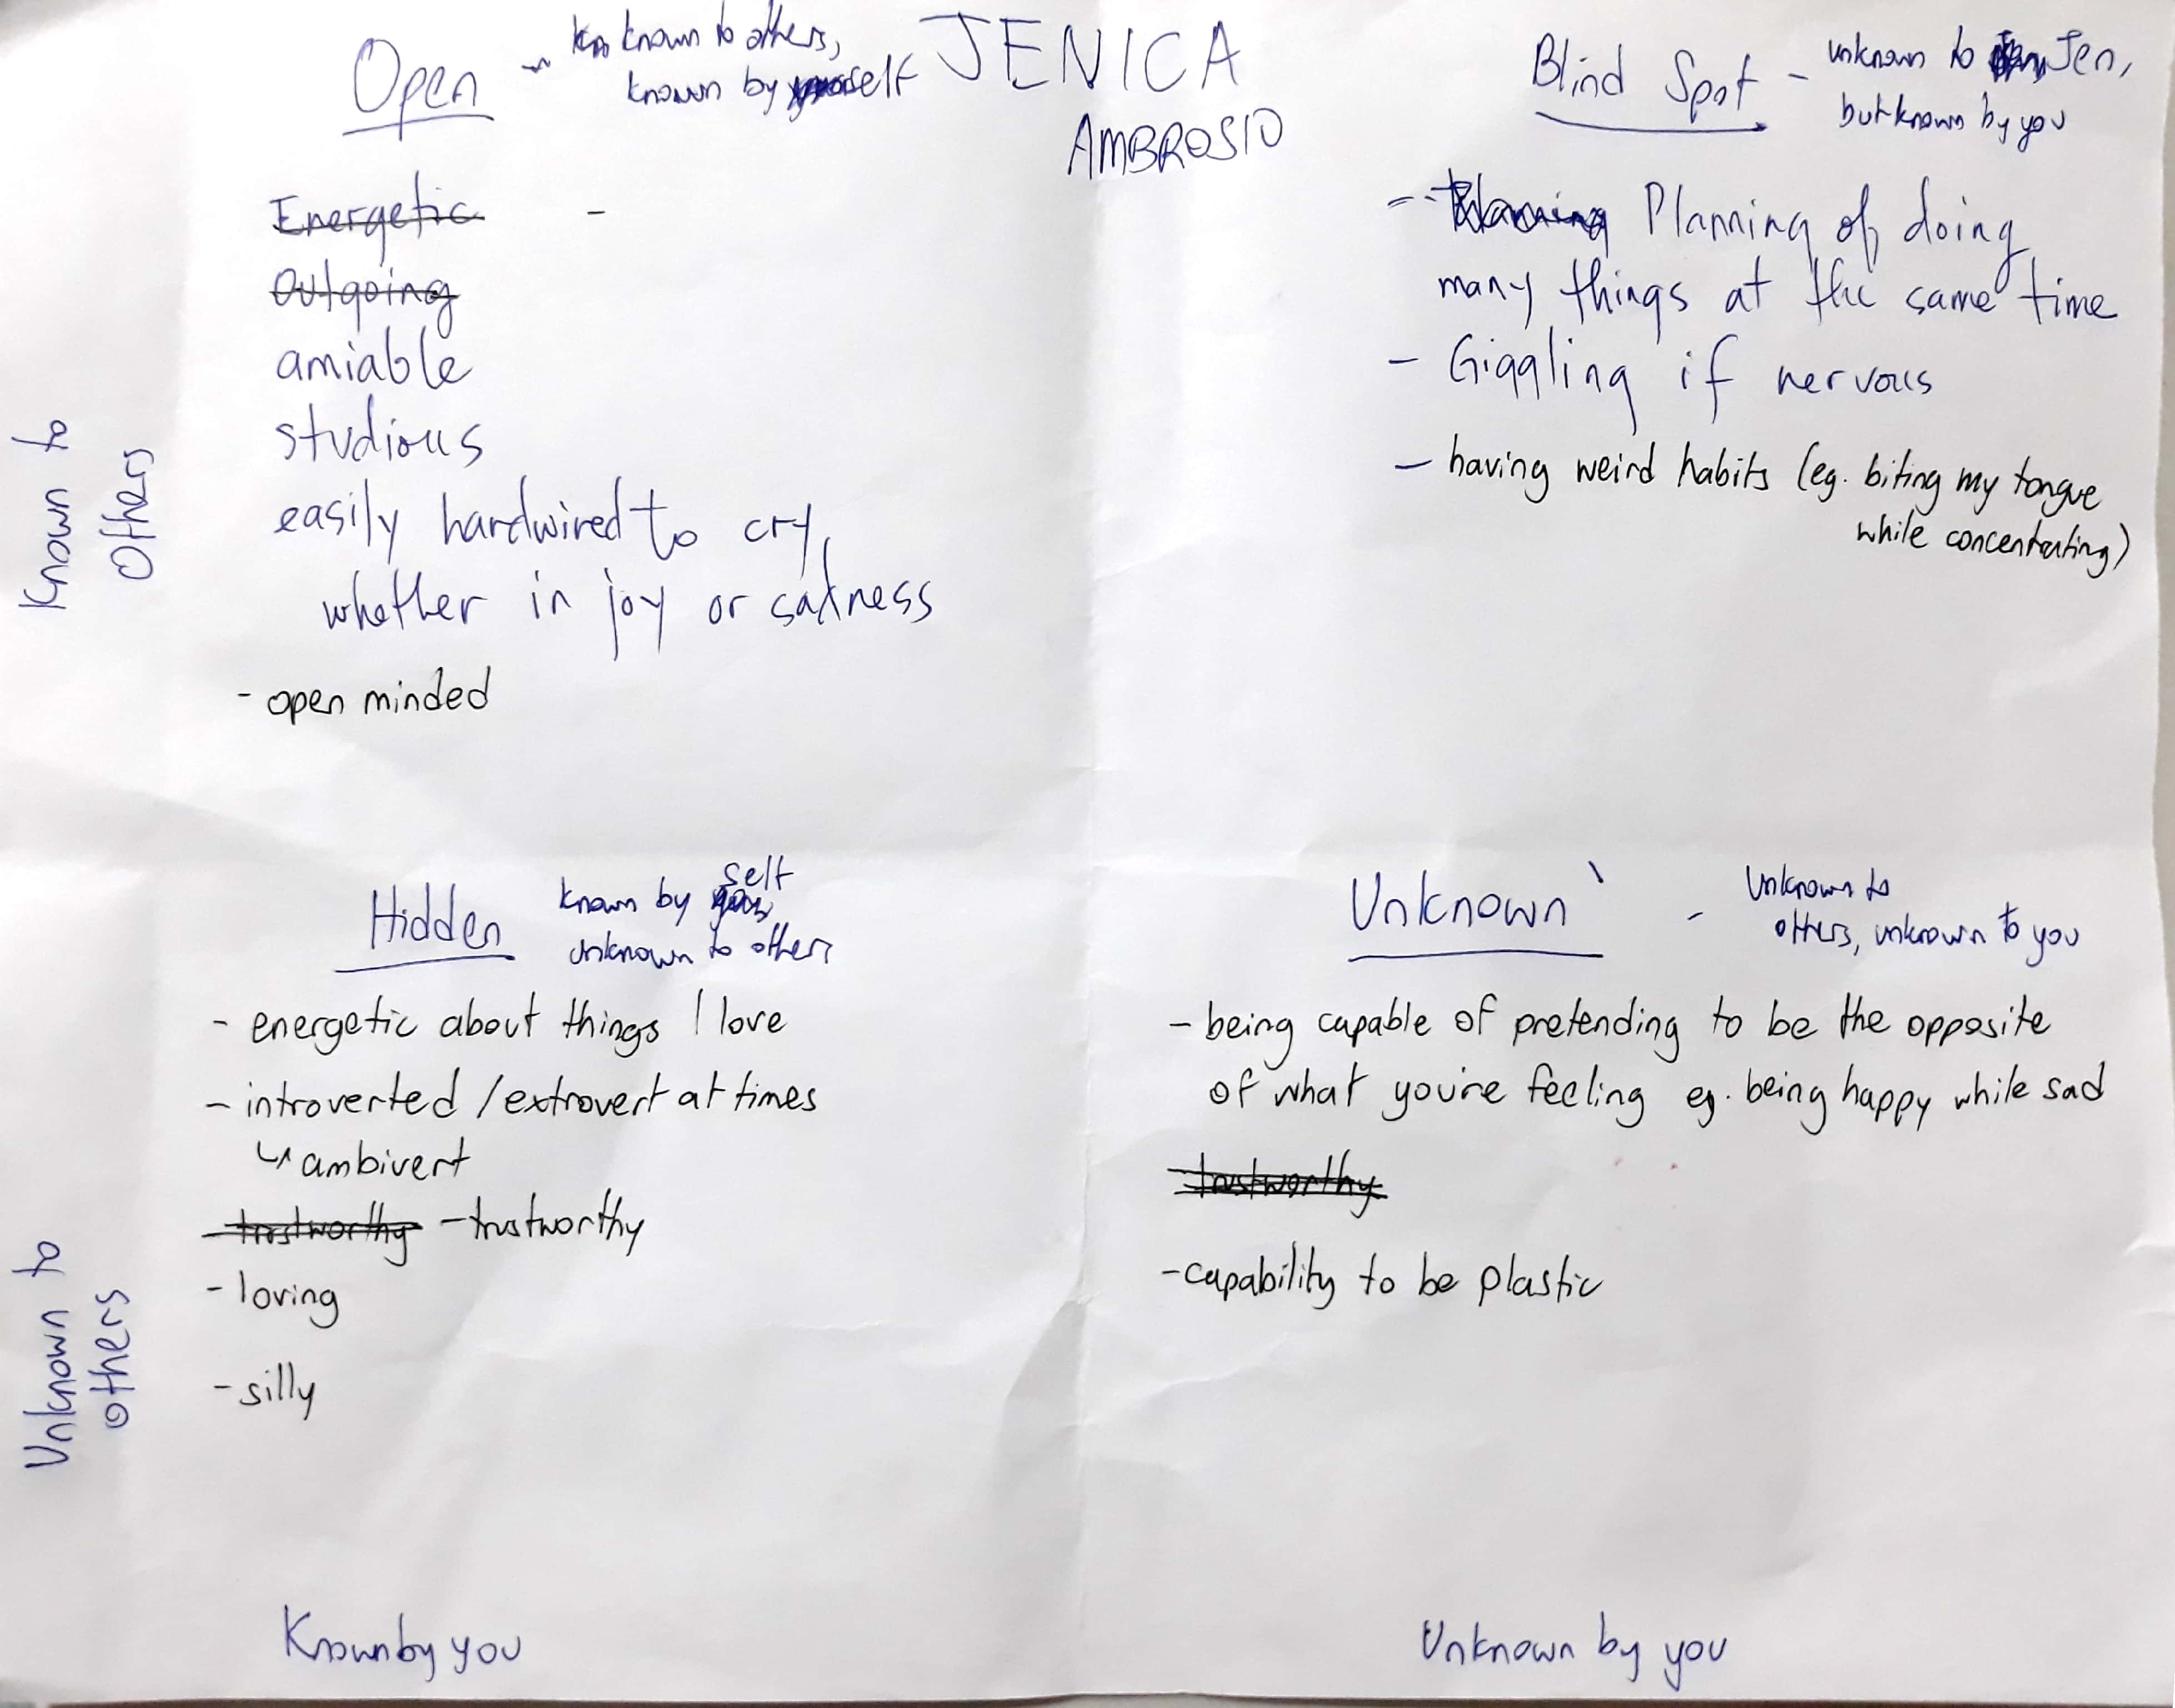 JENICA
AMBROSIO
Open - known to others,
known by self
Energetic -
Outgoing
amiable
studious
easily hardwired to cry,
whether in joy or sadness
- open minded
Known to
Others
Blind Spot - unknown to Jen,
but known by you
-- Planning of doing
many things at the same time
- Giggling if nervous
- having weird habits (eg. biting my tongue
while concentrating)
Hidden known by self
unknown to others
- energetic about things I love
- introverted / extrovert at times
↳ ambivert
- trustworthy - trustworthy
- loving
- silly
Unknown to
others
Unknown - Unknown to
others, unknown to you
- being capable of pretending to be the opposite
of what you're feeling eg. being happy while sad
trustworthy
- capability to be plastic
Known by you
Unknown by you